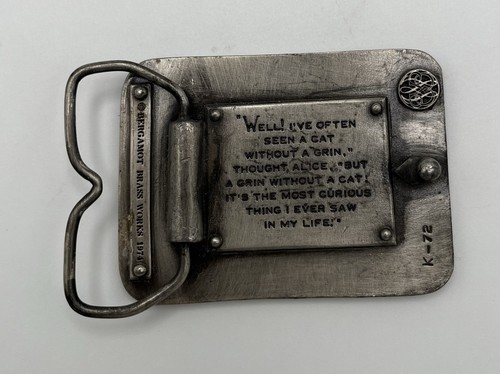 "WELL! I'VE OFTEN
SEEN A CAT
WITHOUT A GRIN,"
THOUGHT, ALICE, "BUT
A GRIN WITHOUT A CAT!
IT'S THE MOST CURIOUS
THING I EVER SAW
IN MY LIFE."
© BERGAMOT BRASS WORKS
K-72